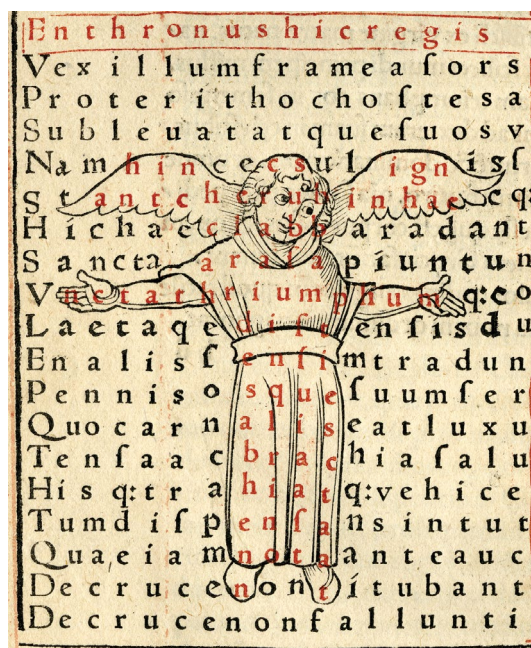 Enthronushicregis
Vexillumframeaſors
Proterithochoſtesa
Subleuatatqueſuosv
Namhinceecsulignisſ
Stantcherubinhaeceq:
Hichaeclabiaradant
Sanctaaraſapiuntun
Vnctathriumphumq:eo
Laetaqediſtenſisdu
Enalisſenſimtradun
Penniſosqueſuumſer
Quocarnaliseatluxu
Tenſaacbrachiaſalu
Hisq:trahiatq:vehice
Tumdiſpenſansintut
Quaeiamnotaanteauc
Decrucenontitubant
Decrucenonfallunti